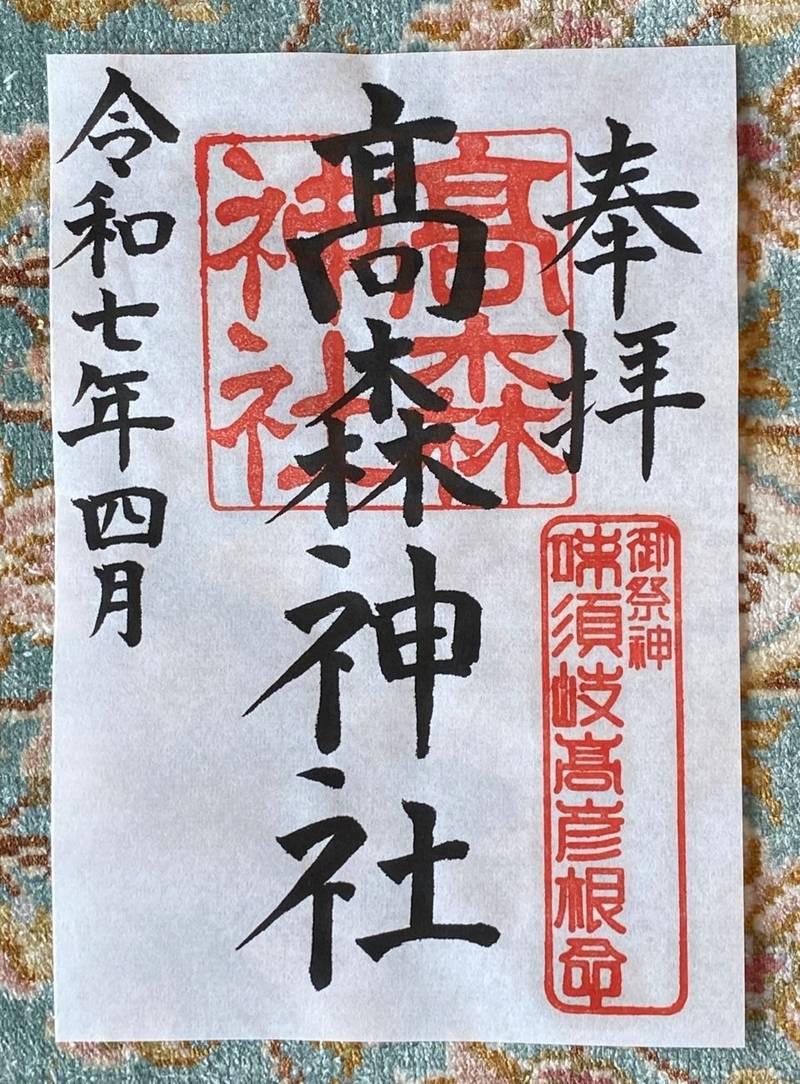 奉拝
御祭神
味須岐髙彦根命
髙森神社
髙森
神社
令和七年四月